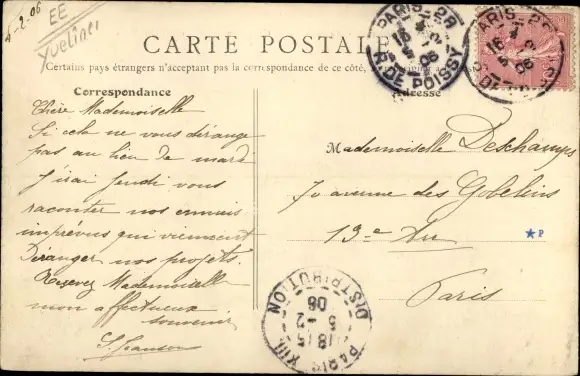 5-2.06
EE
Yvelines
CARTE POSTALE
Certains pays étrangers n'acceptant pas la correspondance de ce côté,
Correspondance
Adresse
Chère Mademoiselle
Si cela ne vous dérange
pas au lieu de mardi
J'irai Jeudi vous
raconter nos ennuis
imprévus qui viennent
Déranger nos projets.
Recevez Mademoiselle
mon affectueux
souvenir
Mademoiselle Deschamps
70 avenue des Gobelins
13e Arr
Paris
★P
PARIS-28
16 5
5 2
06
R. DE POISSY
PARIS-28
16 5
5 2
06
PARIS XIII
18 15
5-2
06
DISTRIBUTION